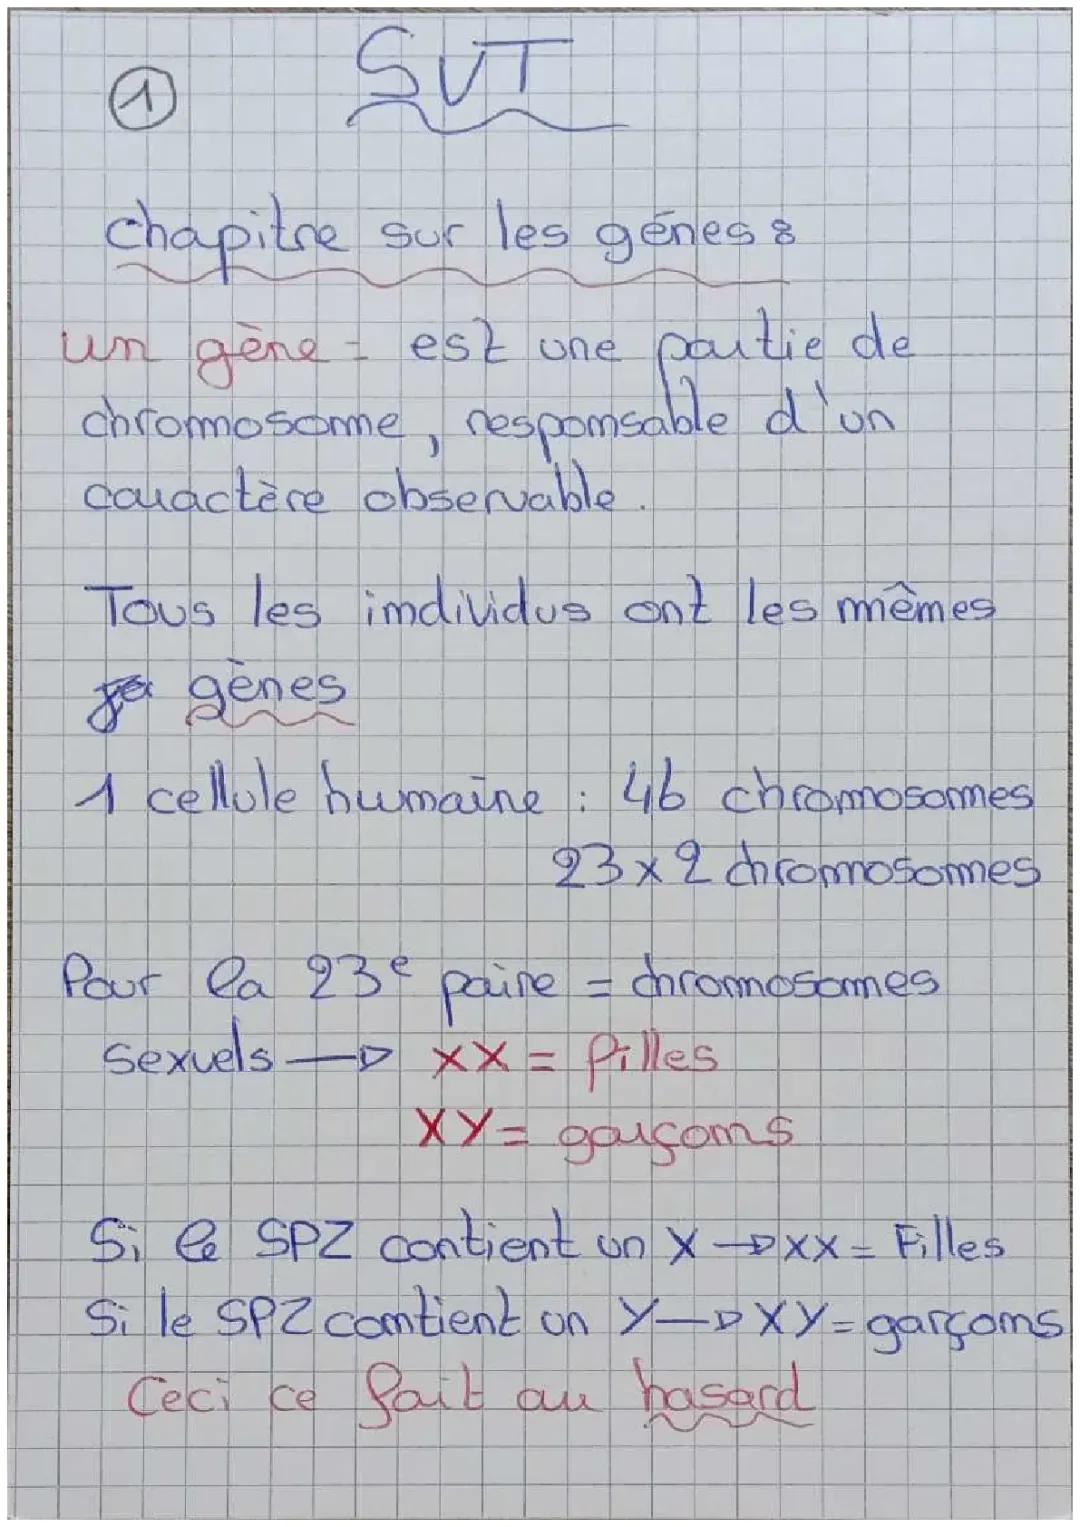 1
SVT
chapitre sur les génes :
un gène = est une partie de
chromosome, responsable d'un
caractère observable.
Tous les individus ont les mêmes
gènes
1 cellule humaine : 46 chromosomes
23 x 2 chromosomes
Pour la 23e paire = chromosomes
sexuels → XX = filles
XY = garçons
Si le SPZ contient un X → XX = Filles
Si le SPZ contient un Y → XY = garçons
Ceci ce fait au hasard